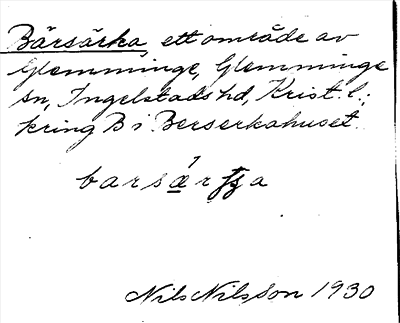 Bärsärka, ett område av
Glemminge, Glemminge
sn, Ingelstads hd, Krist. l.;
kring B i Berserkahuset.
Nils Nilsson 1930